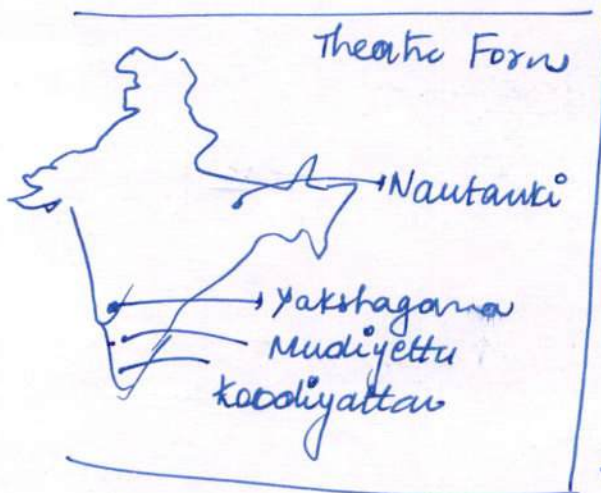 Theatre Form
Nautanki
Yakshagana
Mudiyettu
Koodiyattam